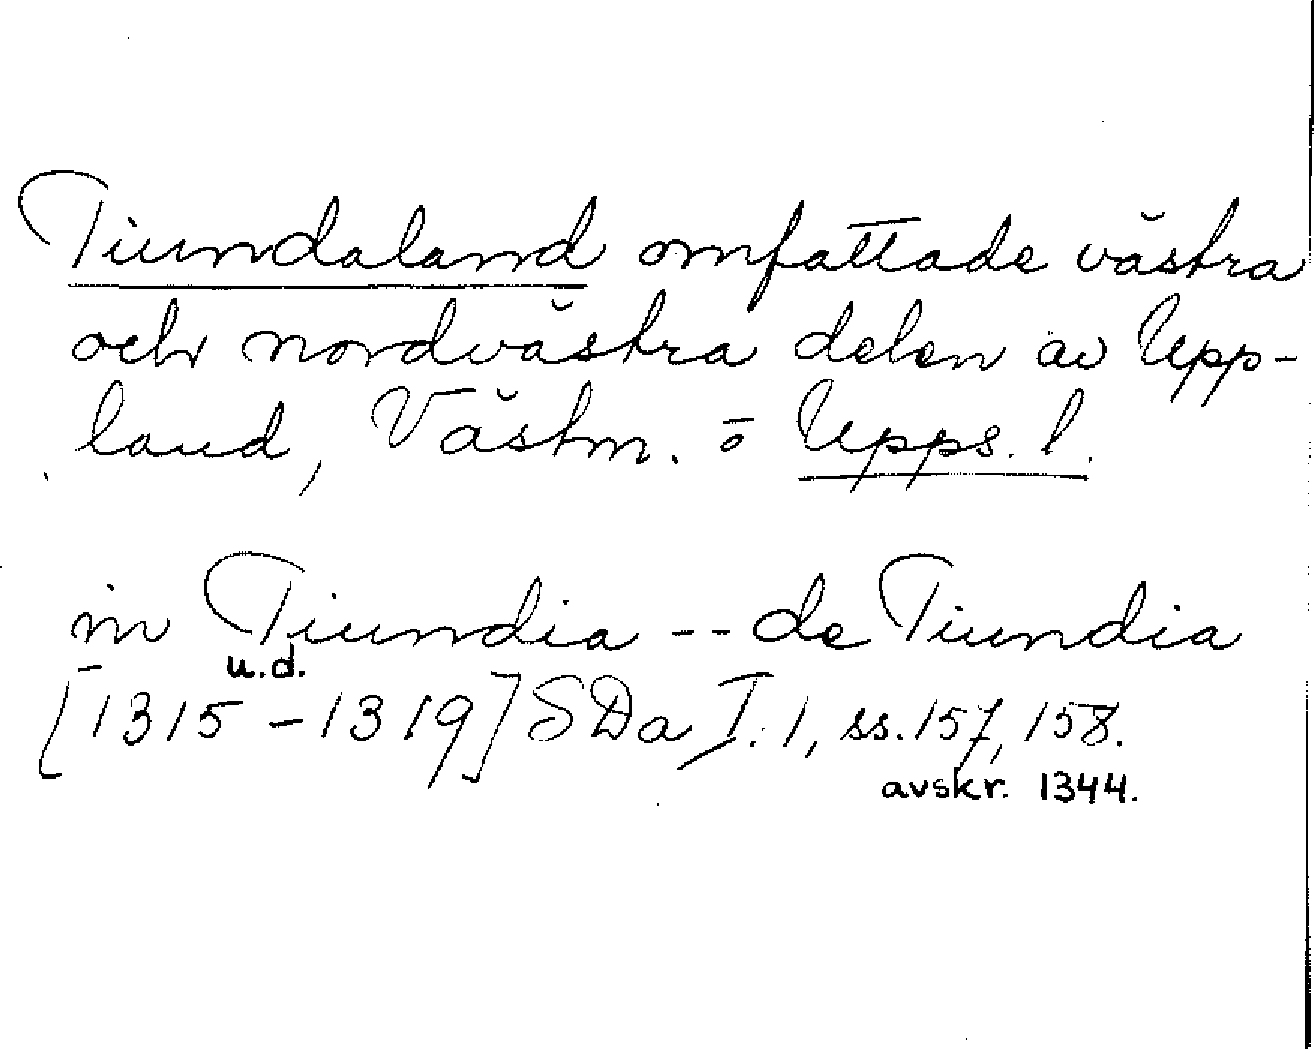 Tiundaland omfattade västra
och nordvästra delen av Upp-
land, Västm. o Upps. l.
in Tiundia -- de Tiundia
u.d.
[1315-1319] SDa I. 1, ss. 157, 158.
avskr. 1344.